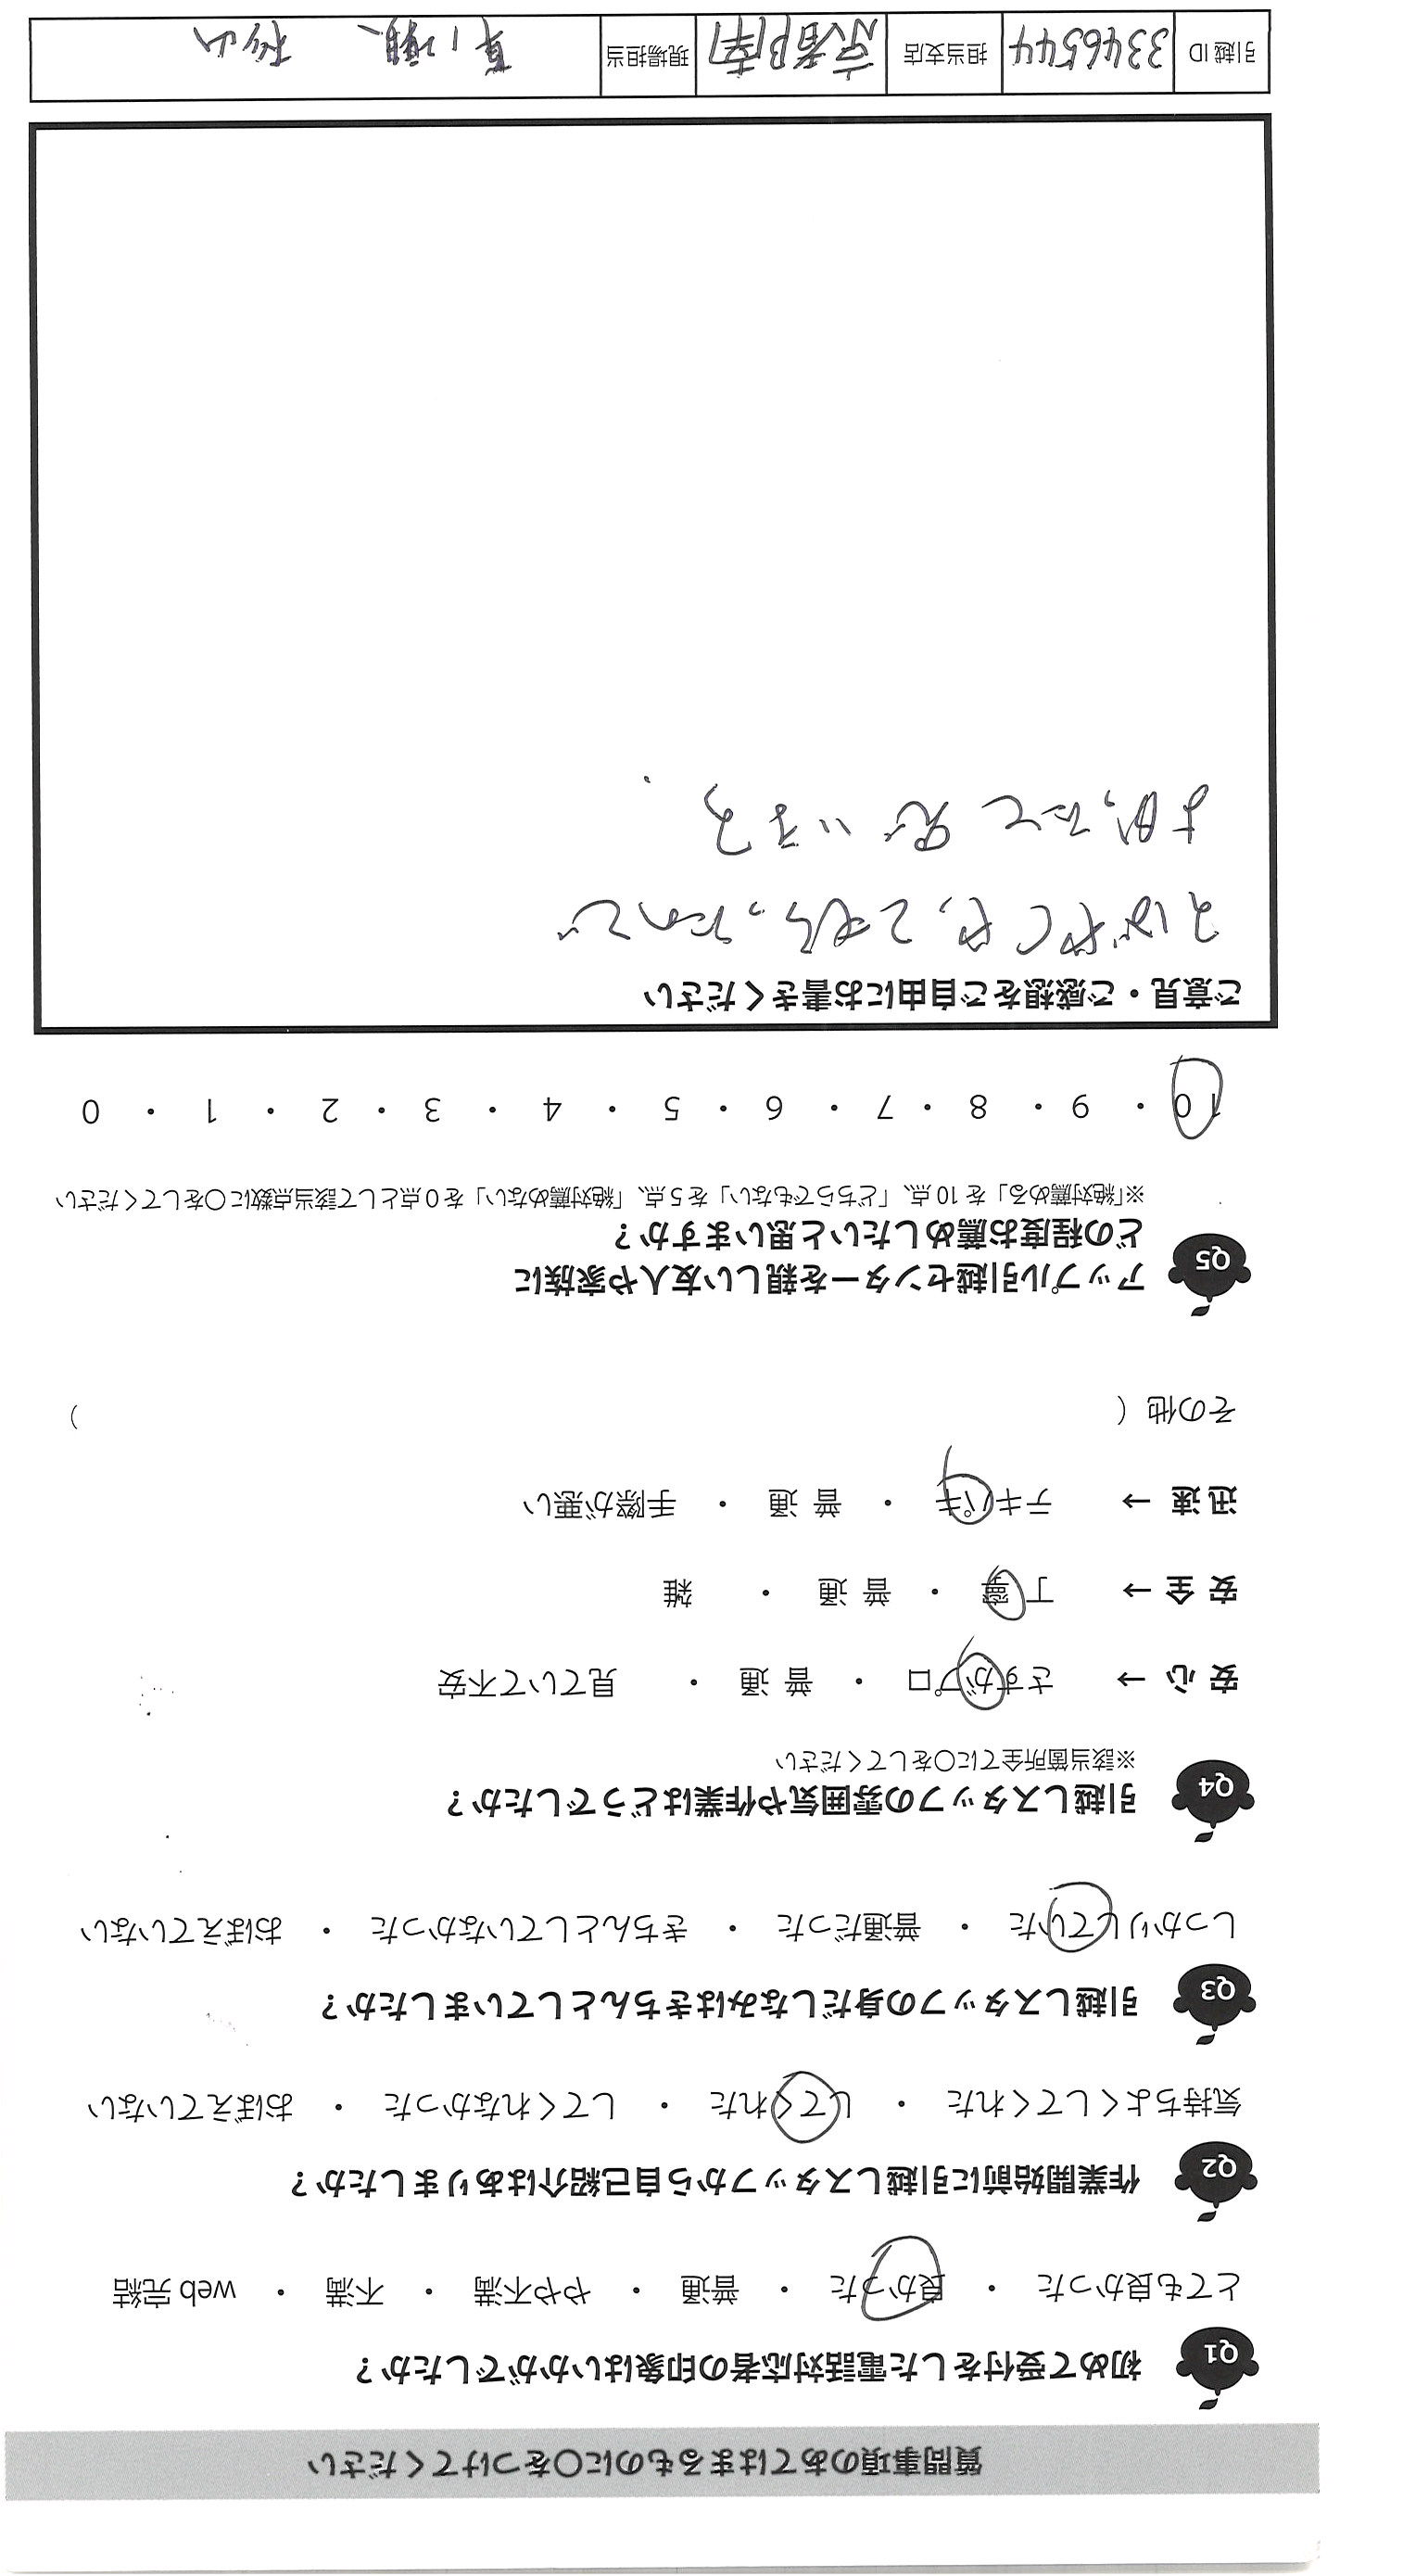 質問事項のあてはまるものに○をつけてください
Q1 初めて受付をした電話対応者の印象はいかがでしたか？
とても良かった ・ 良かった ・ 普通 ・ やや不満 ・ 不満 ・ web 完結
Q2 作業開始前に引越しスタッフから自己紹介はありましたか？
気持ちよくしてくれた ・ してくれた ・ してくれなかった ・ おぼえていない
Q3 引越しスタッフの身だしなみはきちんとしていましたか？
しっかりしていた ・ 普通だった ・ きちんとしていなかった ・ おぼえていない
Q4 引越しスタッフの雰囲気や作業はどうでしたか？
※該当箇所全てに○をしてください
安 心 → さすがプロ ・ 普 通 ・ 見ていて不安
安 全 → 丁 寧 ・ 普 通 ・ 雑
迅 速 → テキパキ ・ 普 通 ・ 手際が悪い
その他 （ ）
Q5 アップル引越センターを親しい友人や家族に
どの程度お薦めしたいと思いますか？
※「絶対薦める」を 10 点、「どちらでもない」を 5 点、「絶対薦めない」を 0 点として該当点数に○をしてください
10 ・ 9 ・ 8 ・ 7 ・ 6 ・ 5 ・ 4 ・ 3 ・ 2 ・ 1 ・ 0
ご意見・ご感想をご自由にお書きください
すばやくやってもらったので
助かって 思います
引越 ID 3346544 担当支店 京都南 現場担当